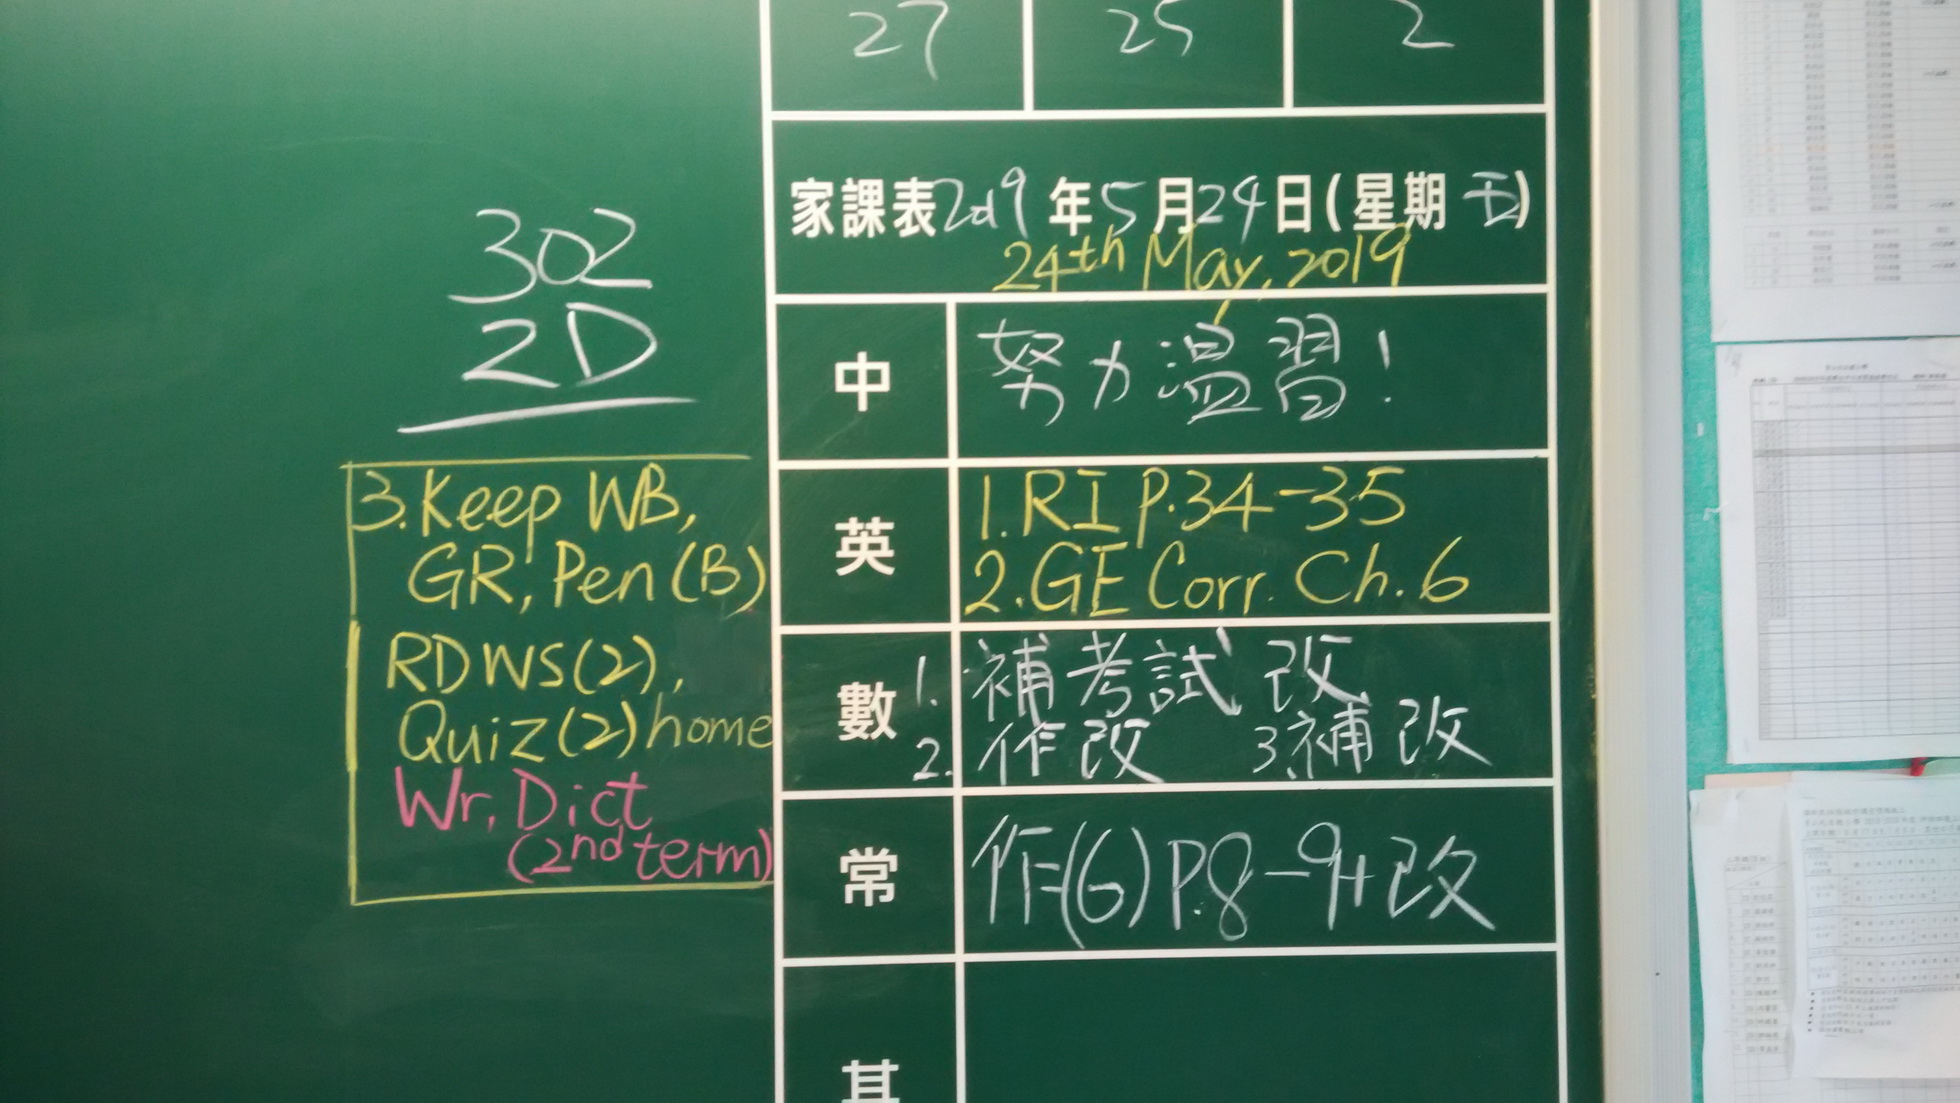 27 25 2
家課表2019年5月24日(星期五)
24th May, 2019
302
2D
中 努力溫習!
英 1. RI P.34-35
2. GE Corr. Ch. 6
3. Keep WB,
GR, Pen (B)
RDWS(2),
Quiz(2) home
Wr. Dict
(2nd term)
數 1. 補考試改
2. 作改 3.補改
常 作(6) P.8-9+改
其